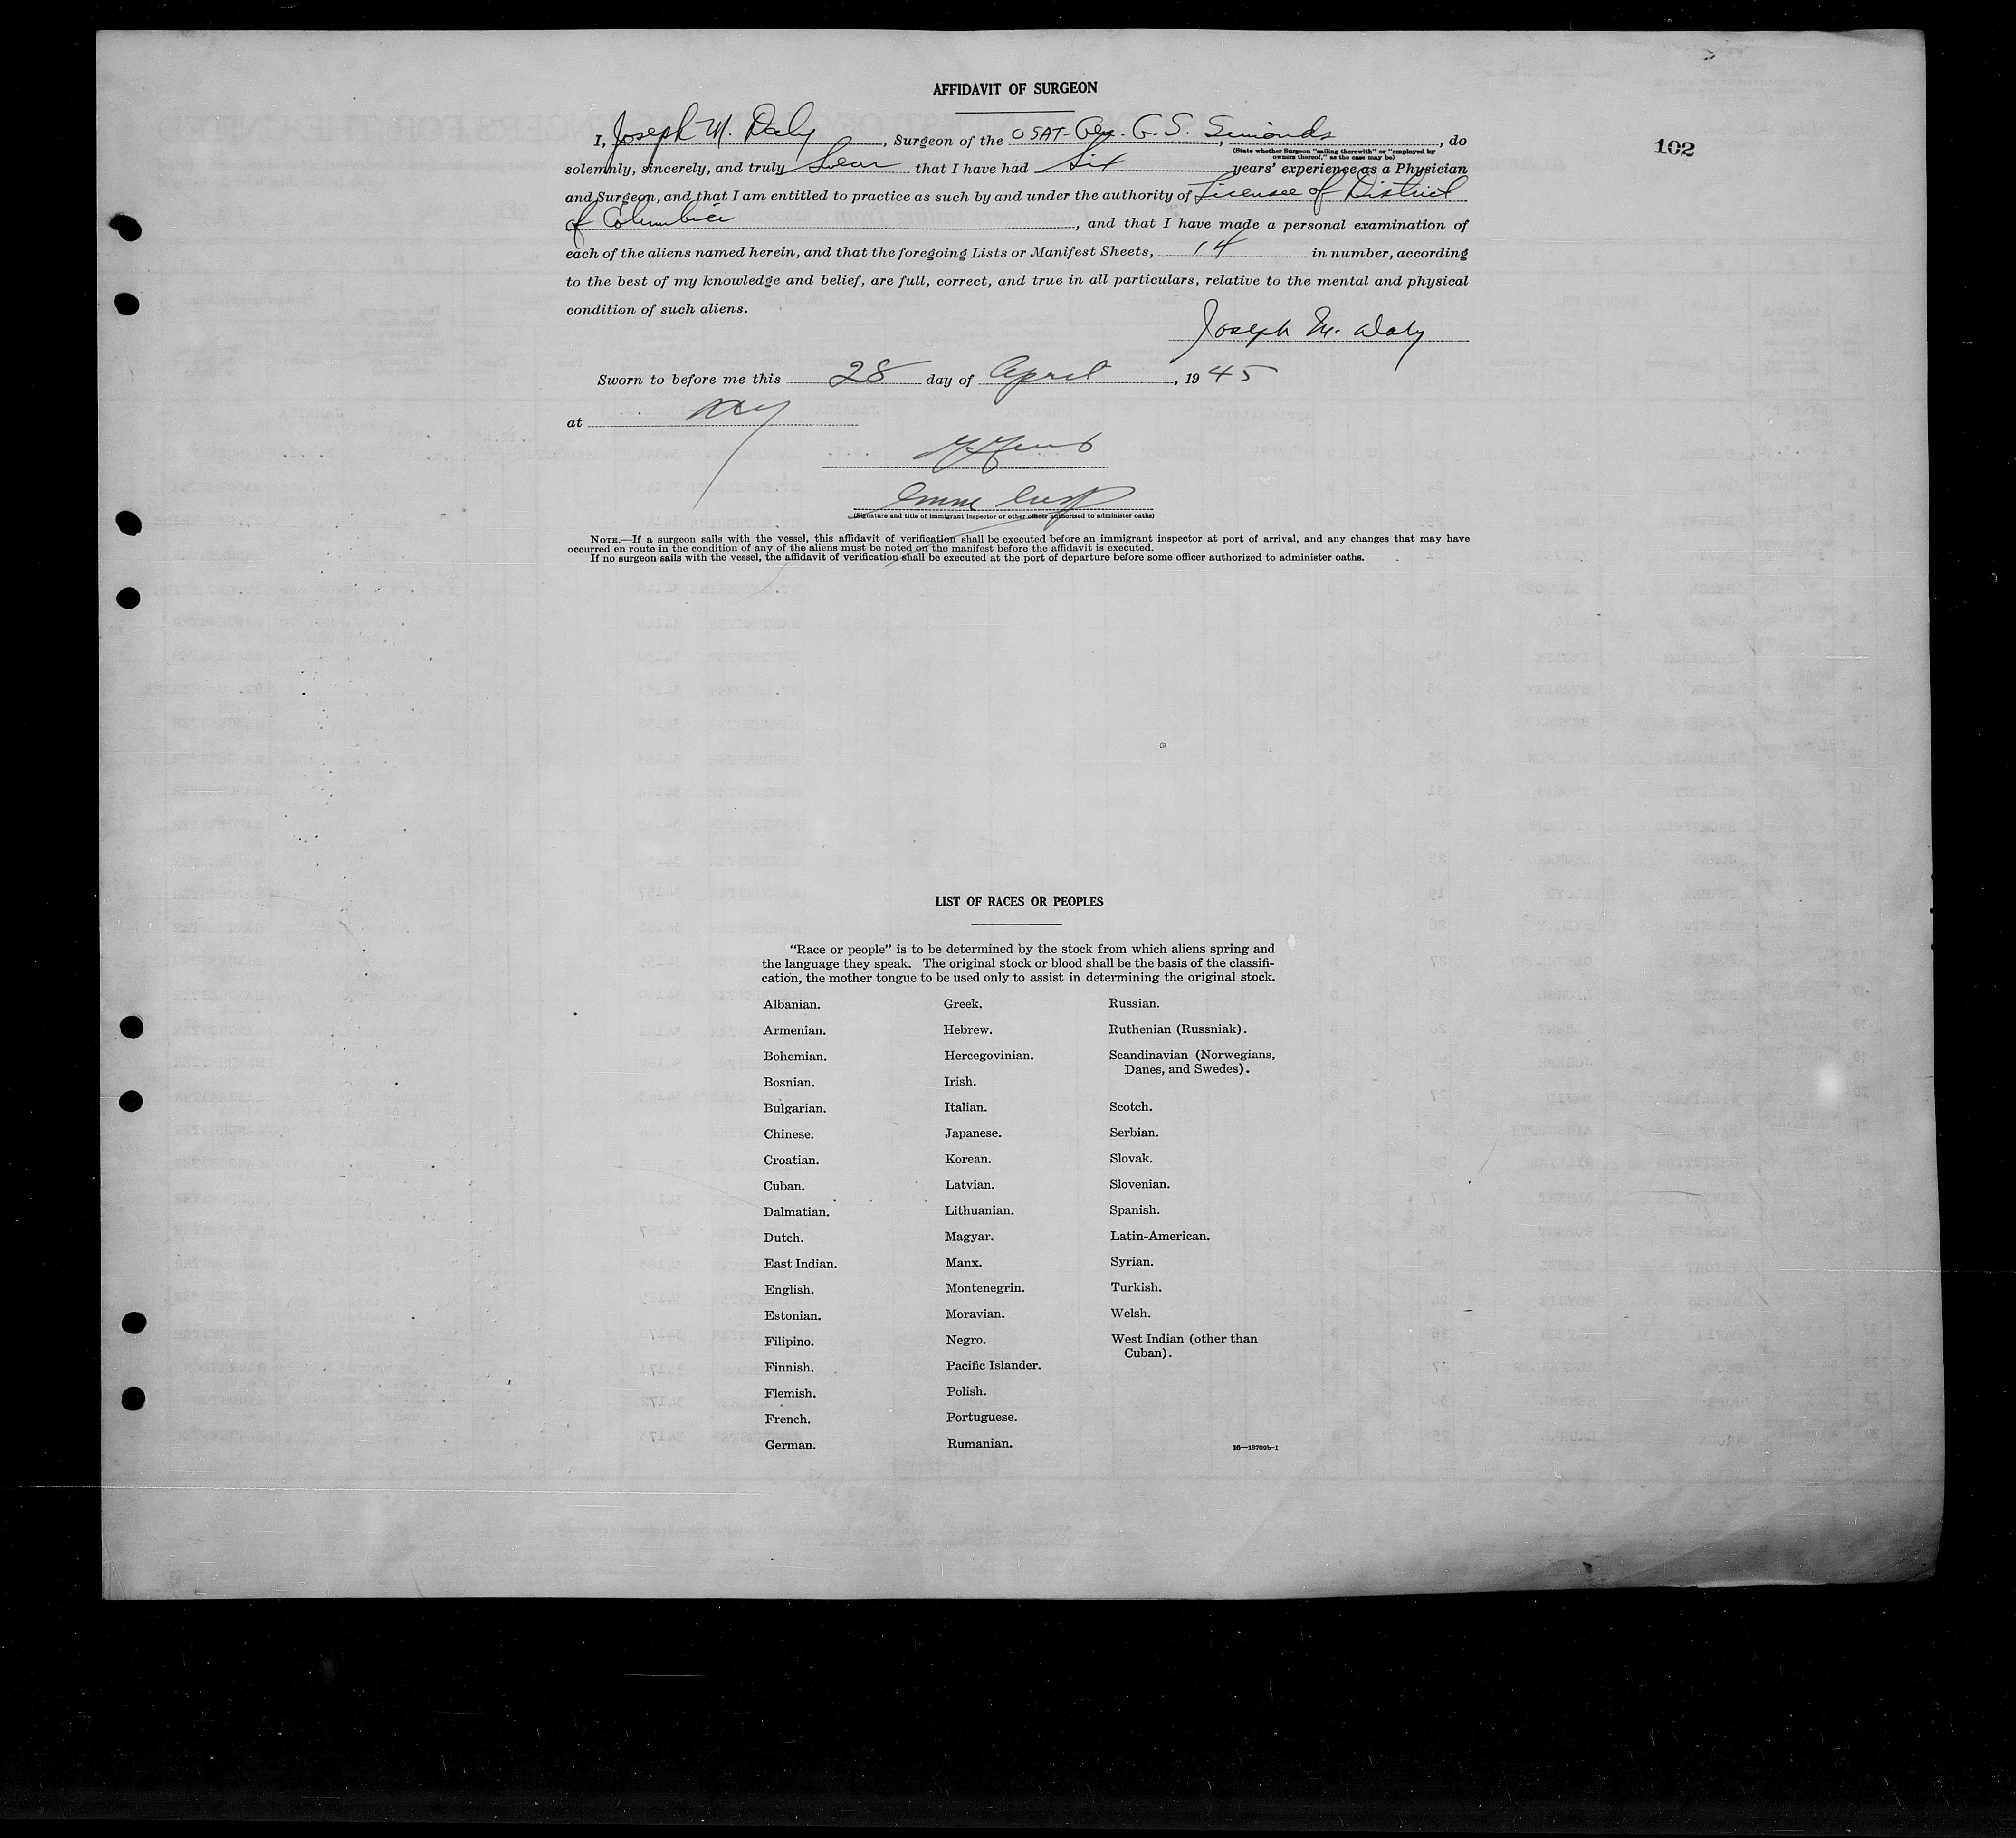 AFFIDAVIT OF SURGEON
102
I, Joseph M. Daly, Surgeon of the USAT- Gen. G. S. Simonds, do
(State whether Surgeon "sailing therewith" or "employed by
owners thereof," as the case may be)
solemnly, sincerely, and truly Swear that I have had Six years' experience as a Physician
and Surgeon, and that I am entitled to practice as such by and under the authority of Licensee of District
of Columbia, and that I have made a personal examination of
each of the aliens named herein, and that the foregoing Lists or Manifest Sheets, 14 in number, according
to the best of my knowledge and belief, are full, correct, and true in all particulars, relative to the mental and physical
condition of such aliens.
Joseph M. Daly
Sworn to before me this 28 day of April, 1945
at
(Signature and title of immigrant inspector or other officer authorized to administer oaths)
NOTE.—If a surgeon sails with the vessel, this affidavit of verification shall be executed before an immigrant inspector at port of arrival, and any changes that may have
occurred en route in the condition of any of the aliens must be noted on the manifest before the affidavit is executed.
If no surgeon sails with the vessel, the affidavit of verification shall be executed at the port of departure before some officer authorized to administer oaths.
LIST OF RACES OR PEOPLES
"Race or people" is to be determined by the stock from which aliens spring and
the language they speak. The original stock or blood shall be the basis of the classifi-
cation, the mother tongue to be used only to assist in determining the original stock.
Albanian.
Armenian.
Bohemian.
Bosnian.
Bulgarian.
Chinese.
Croatian.
Cuban.
Dalmatian.
Dutch.
East Indian.
English.
Estonian.
Filipino.
Finnish.
Flemish.
French.
German.
Greek.
Hebrew.
Hercegovinian.
Irish.
Italian.
Japanese.
Korean.
Latvian.
Lithuanian.
Magyar.
Manx.
Montenegrin.
Moravian.
Negro.
Pacific Islander.
Polish.
Portuguese.
Rumanian.
Russian.
Ruthenian (Russniak).
Scandinavian (Norwegians,
Danes, and Swedes).
Scotch.
Serbian.
Slovak.
Slovenian.
Spanish.
Latin-American.
Syrian.
Turkish.
Welsh.
West Indian (other than
Cuban).
16—18709b-1